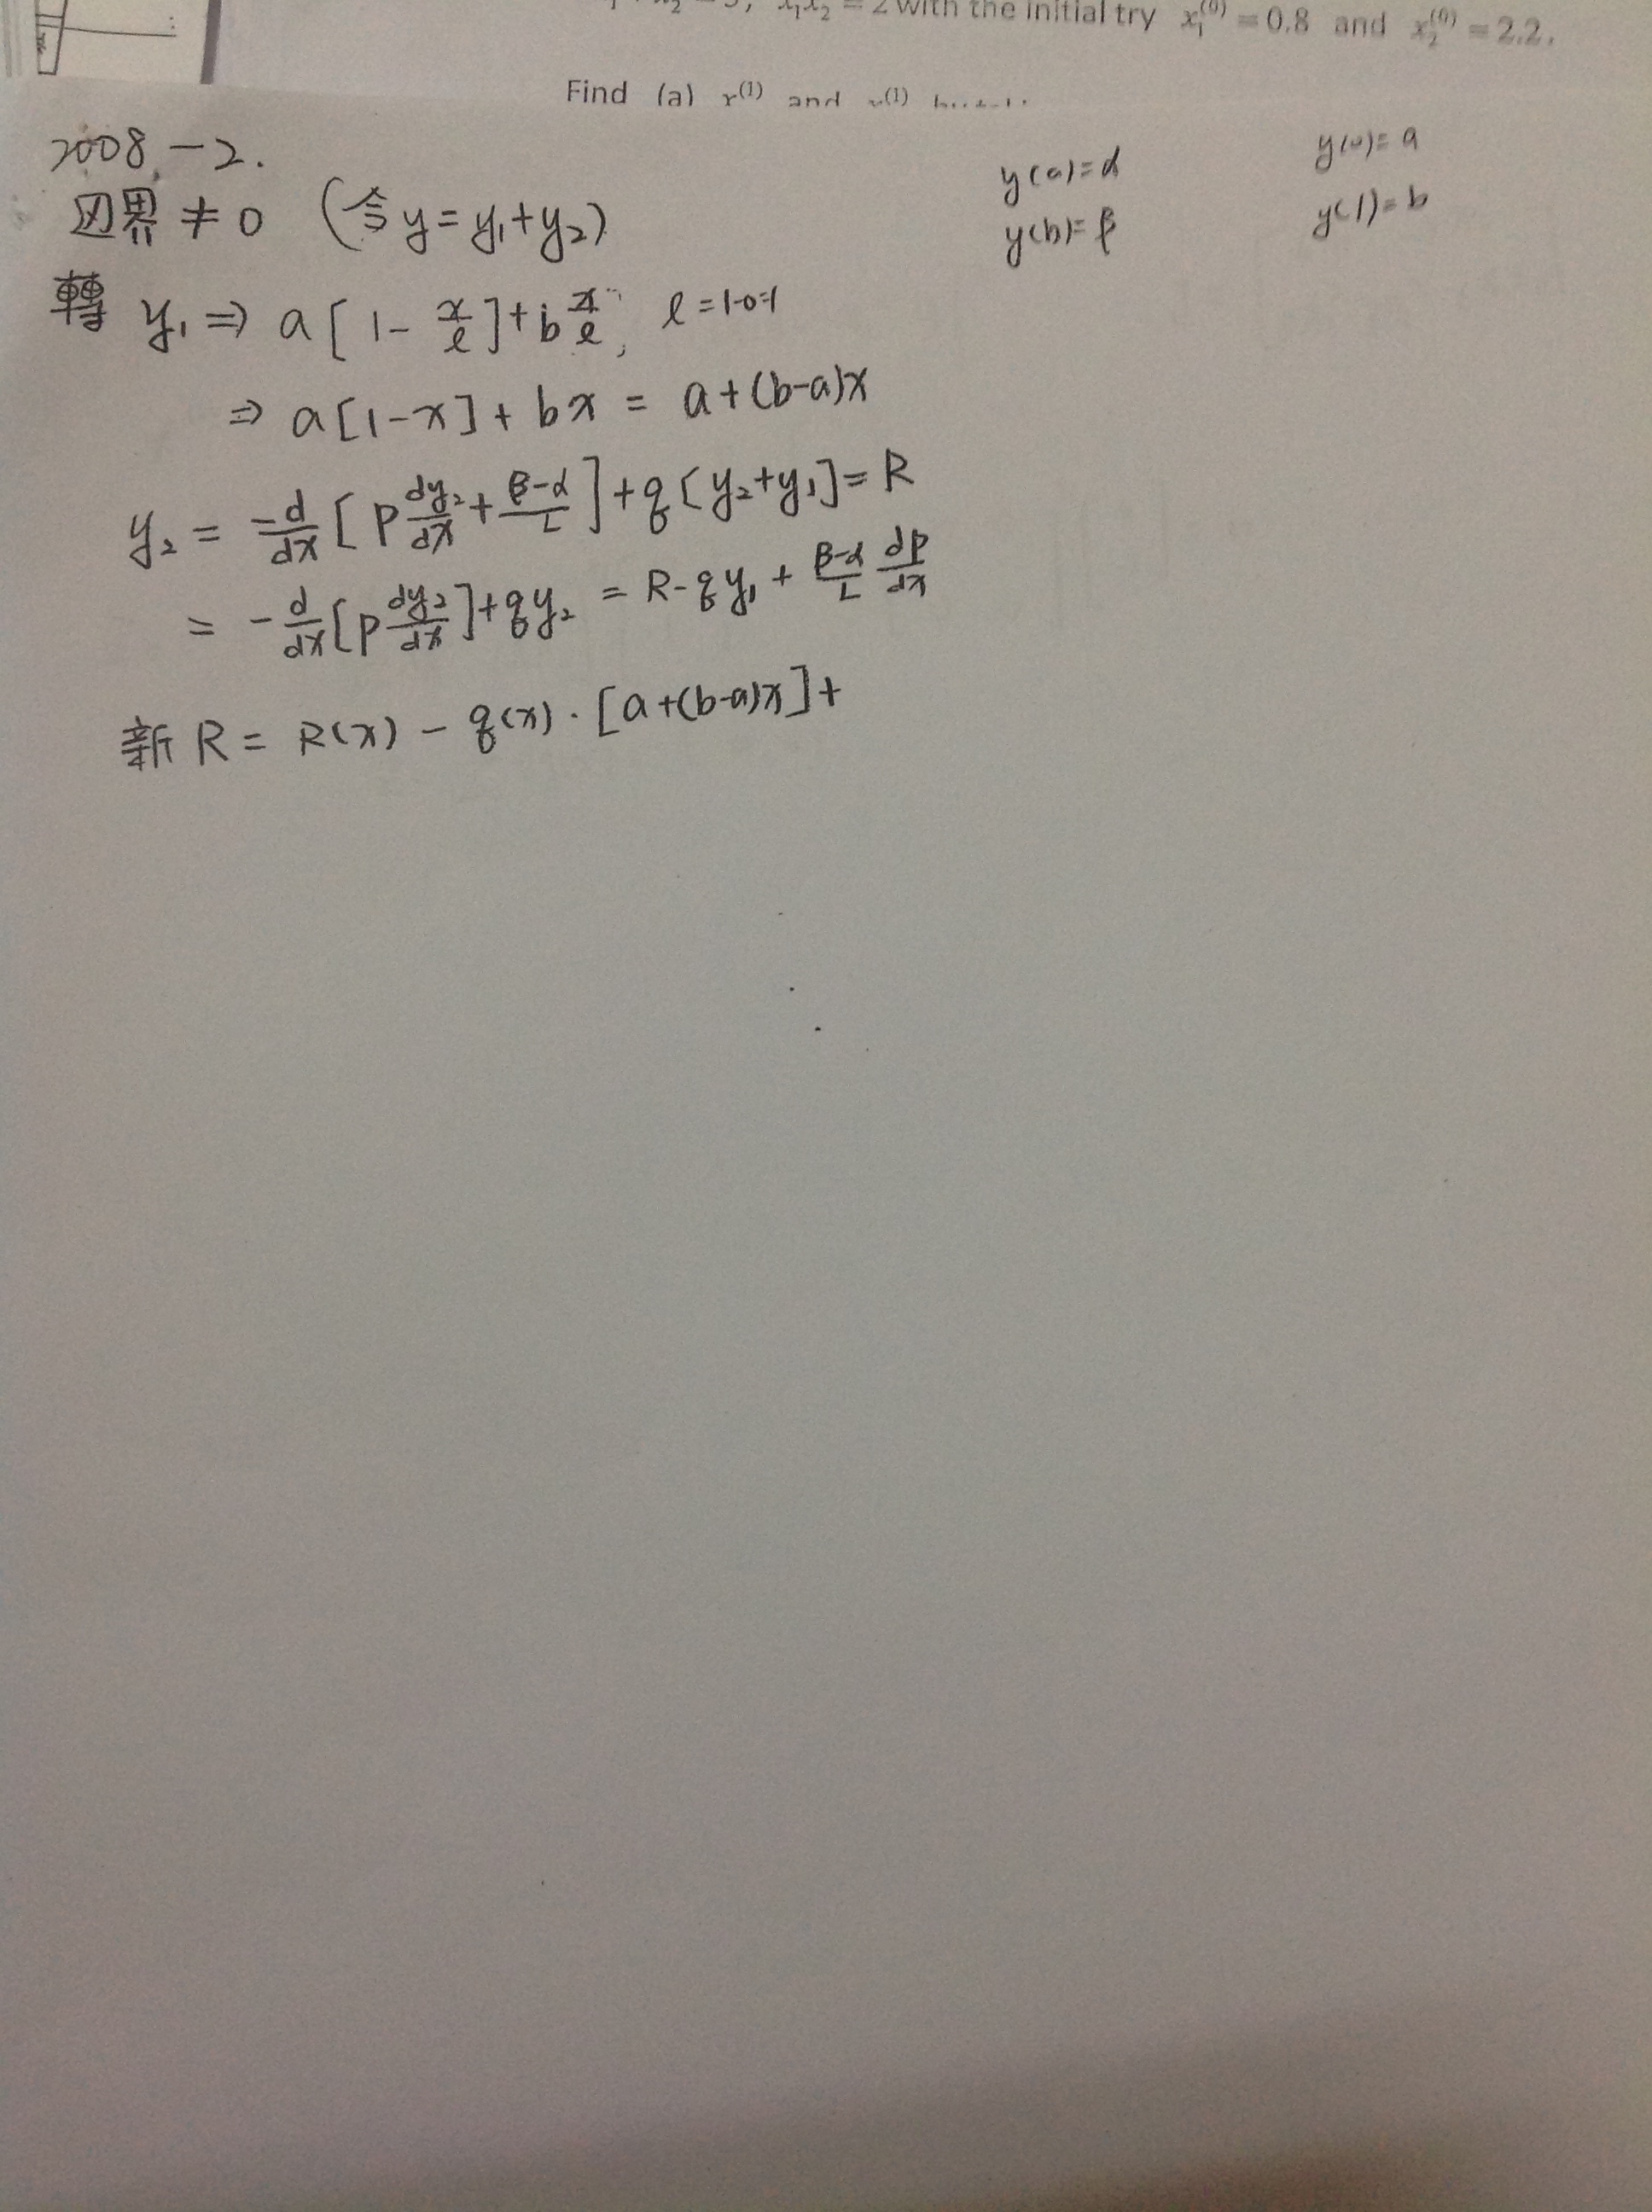 x₁x₂ = 2 with the initial try x₁⁽⁰⁾ = 0.8 and x₂⁽⁰⁾ = 2.2.
Find (a) x⁽¹⁾ and
2008 - 2.
边界 ≠ 0 (令 y = y₁+y₂)
y(a)=α
y(b)=β
y(0)=a
y(1)=b
轉 y₁ ⇒ a[1 - x/ℓ] + b x/ℓ, ℓ=1-0=1
⇒ a[1-x] + bx = a+(b-a)x
y₂ = -d/dx [p dy₂/dx + (β-α)/L] + q[y₂+y₁] = R
= -d/dx [p dy₂/dx] + qy₂ = R - qy₁ + (β-α)/L dp/dx
新 R = R(x) - q(x)·[a+(b-a)x] +